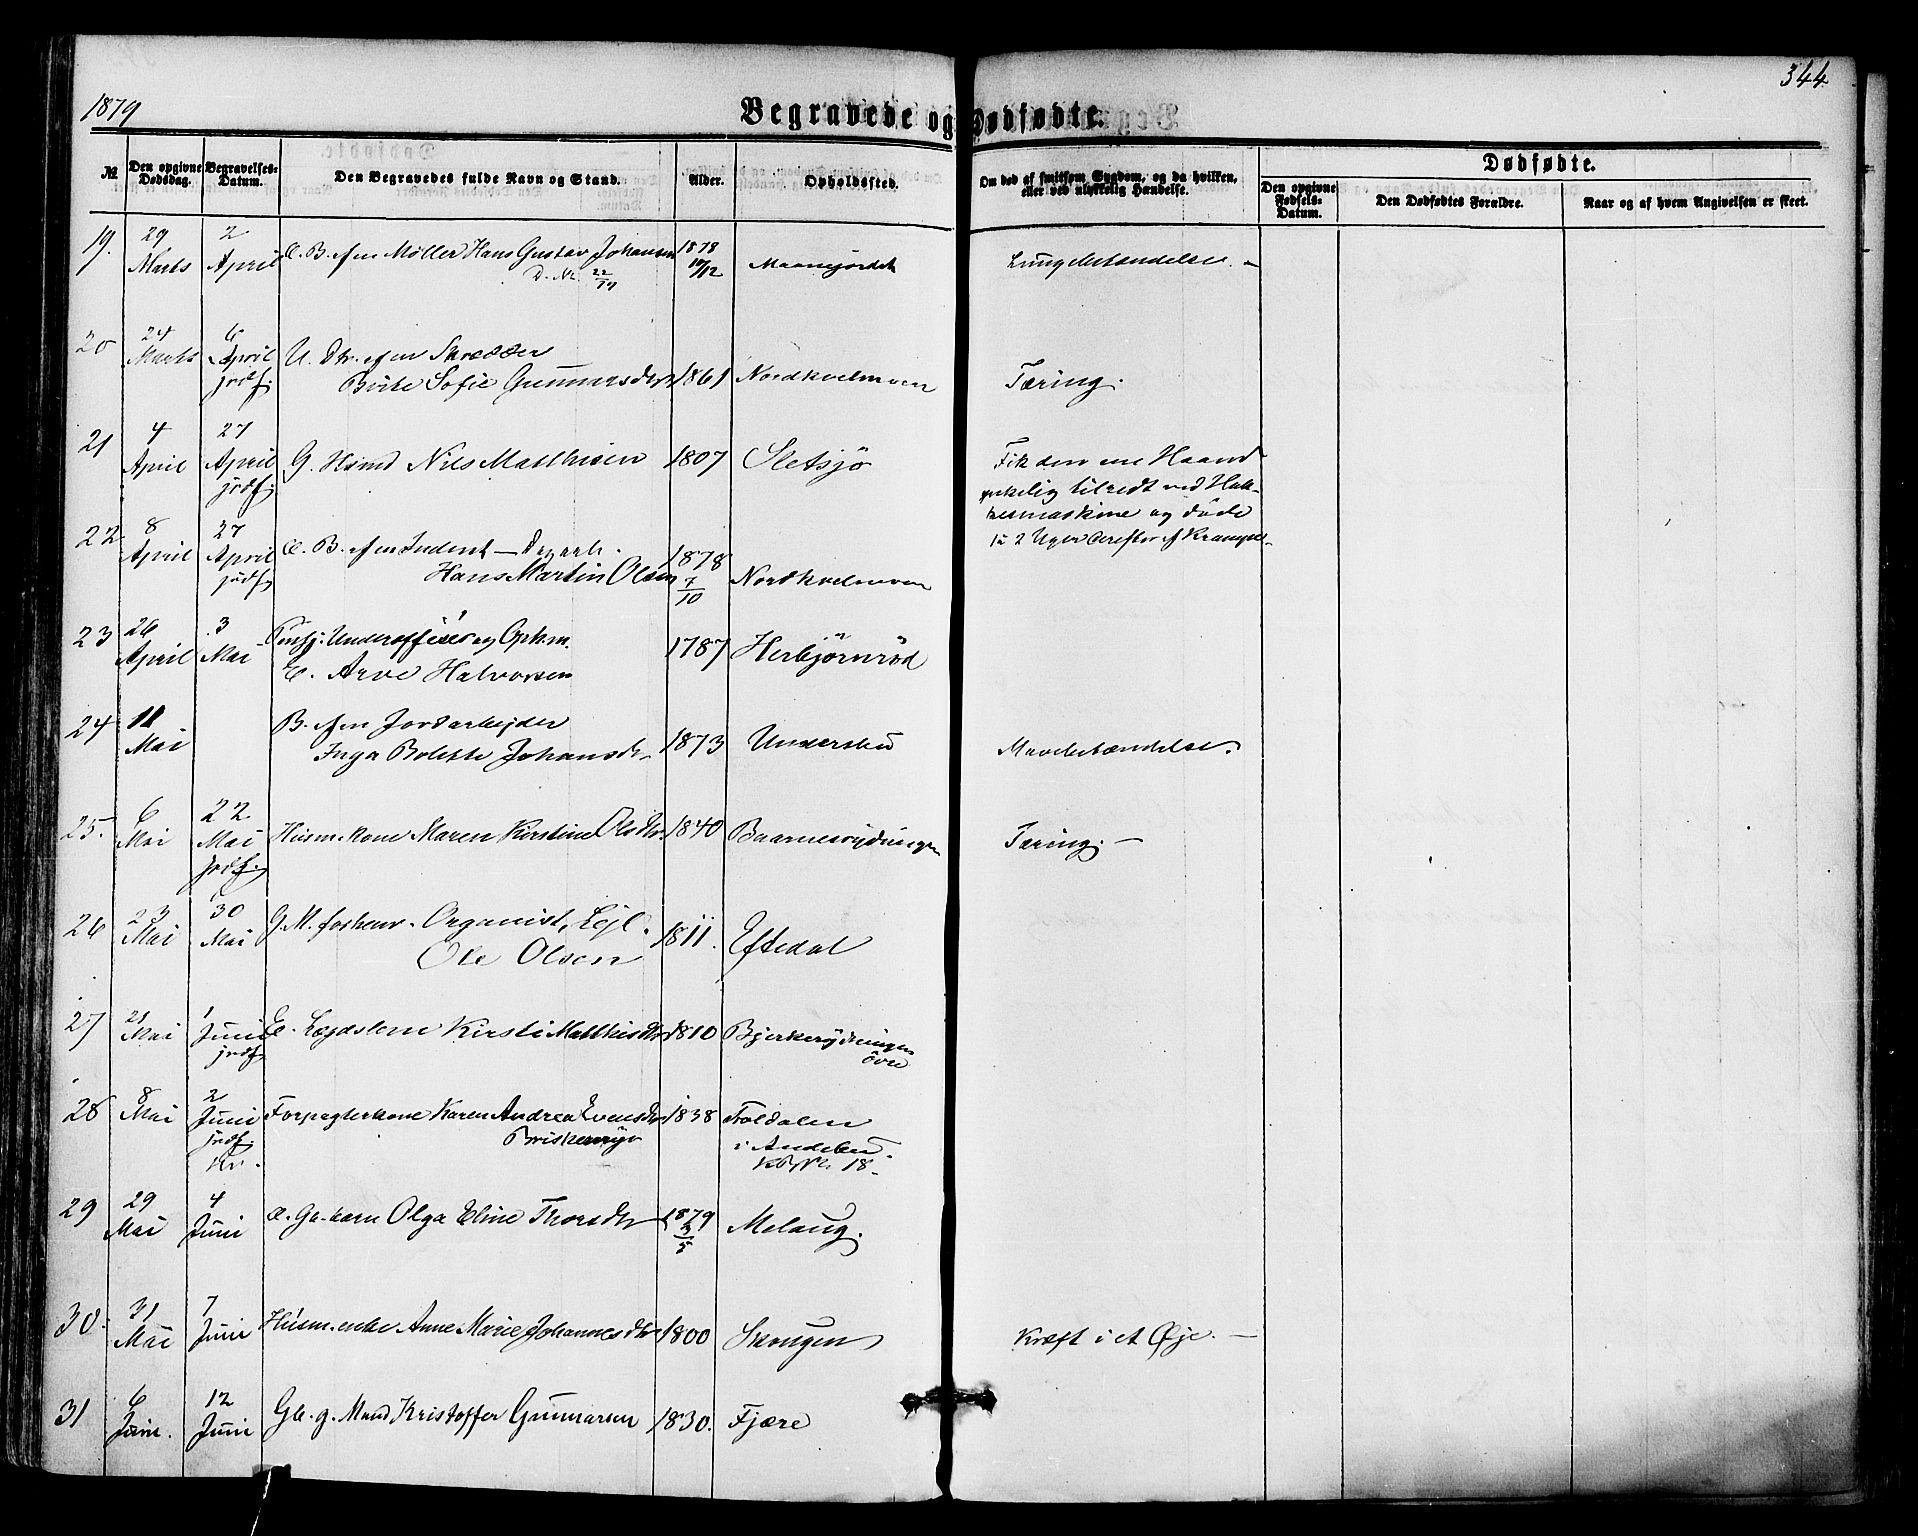 1879
344
Begravede og Dødfødte.
№
Den opgivne Dødsdag.
Begravelses-Datum.
Den Begravedes fulde Navn og Stand.
Alder.
Opholdssted.
Om død af smitsom Sygdom, og da hvilken, eller ved ulykkelig Hændelse.
Dødfødte.
Den opgivne Fødsels-Datum.
Den Dødfødtes Forældre.
Naar og af hvem Angivelsen er skeet.
19. 29 Marts 2 April E. B. af en Møller Hans Gustav Johansen 1878 10/12
D. No. 22/79
20 24 Marts 6 April jrdf. U. Dtr. af en Skrædder
Berte Sofie Gunnarsdtr 1861 Nordkvelmoen Tæring.
21 4 April 27 April jrdf. G. Husmd Nils Matthisen 1807 Sletsjö Fik den ene Haand
ynkelig tilredt ved Hak-
kesmaskine og döde
1 à 2 Uger derefter af Krampe
22 8 April 27 April jrdf. E. B. af en Inderst - Dagarb.
Hans Martin Olsen 1878 7/10 Nordkvelmoen
23 26 April 3 Mai Underofficer og
E. Arve Halvorsen 1787 Herbjörnröd
24 11 Mai B. af en Jordarbejder
Inga Bolette Johansdr 1873 Undersku Mavebetændelse.
25. 6 Mai 22 Mai jrdf. Husm. kone Maren Kirstine Olsdtr. 1840 Baarnesrydningen Tæring. -
26 23 Mai 30 Mai G. M. forhenv. Organist, Lejl.
Ole Olsen 1811. Eftedal
27 21 Mai 1 Juni jrdf E. Lægdslem Kirsti Matthisdtr 1810 Bjerkerydningen
övre
28 8 Mai 2 Juni jrdf. Kr. Forpagterkone Karen Andrea Evensdtr 1838 Troldalen
i Andebu.
18.
29 29 Mai 4 Juni E. Gb. barn Olga Eline Thorsdtr 1879 3/5 Melaug.
30. 31 Mai 7 Juni Husm. enke Anne Marie Johannesdtr 1800 Skougen Kræft i et Øje. -
31 6 Juni. 12 Juni Gb. g. Mand Kristoffer Gunnarsen 1830. Fjære